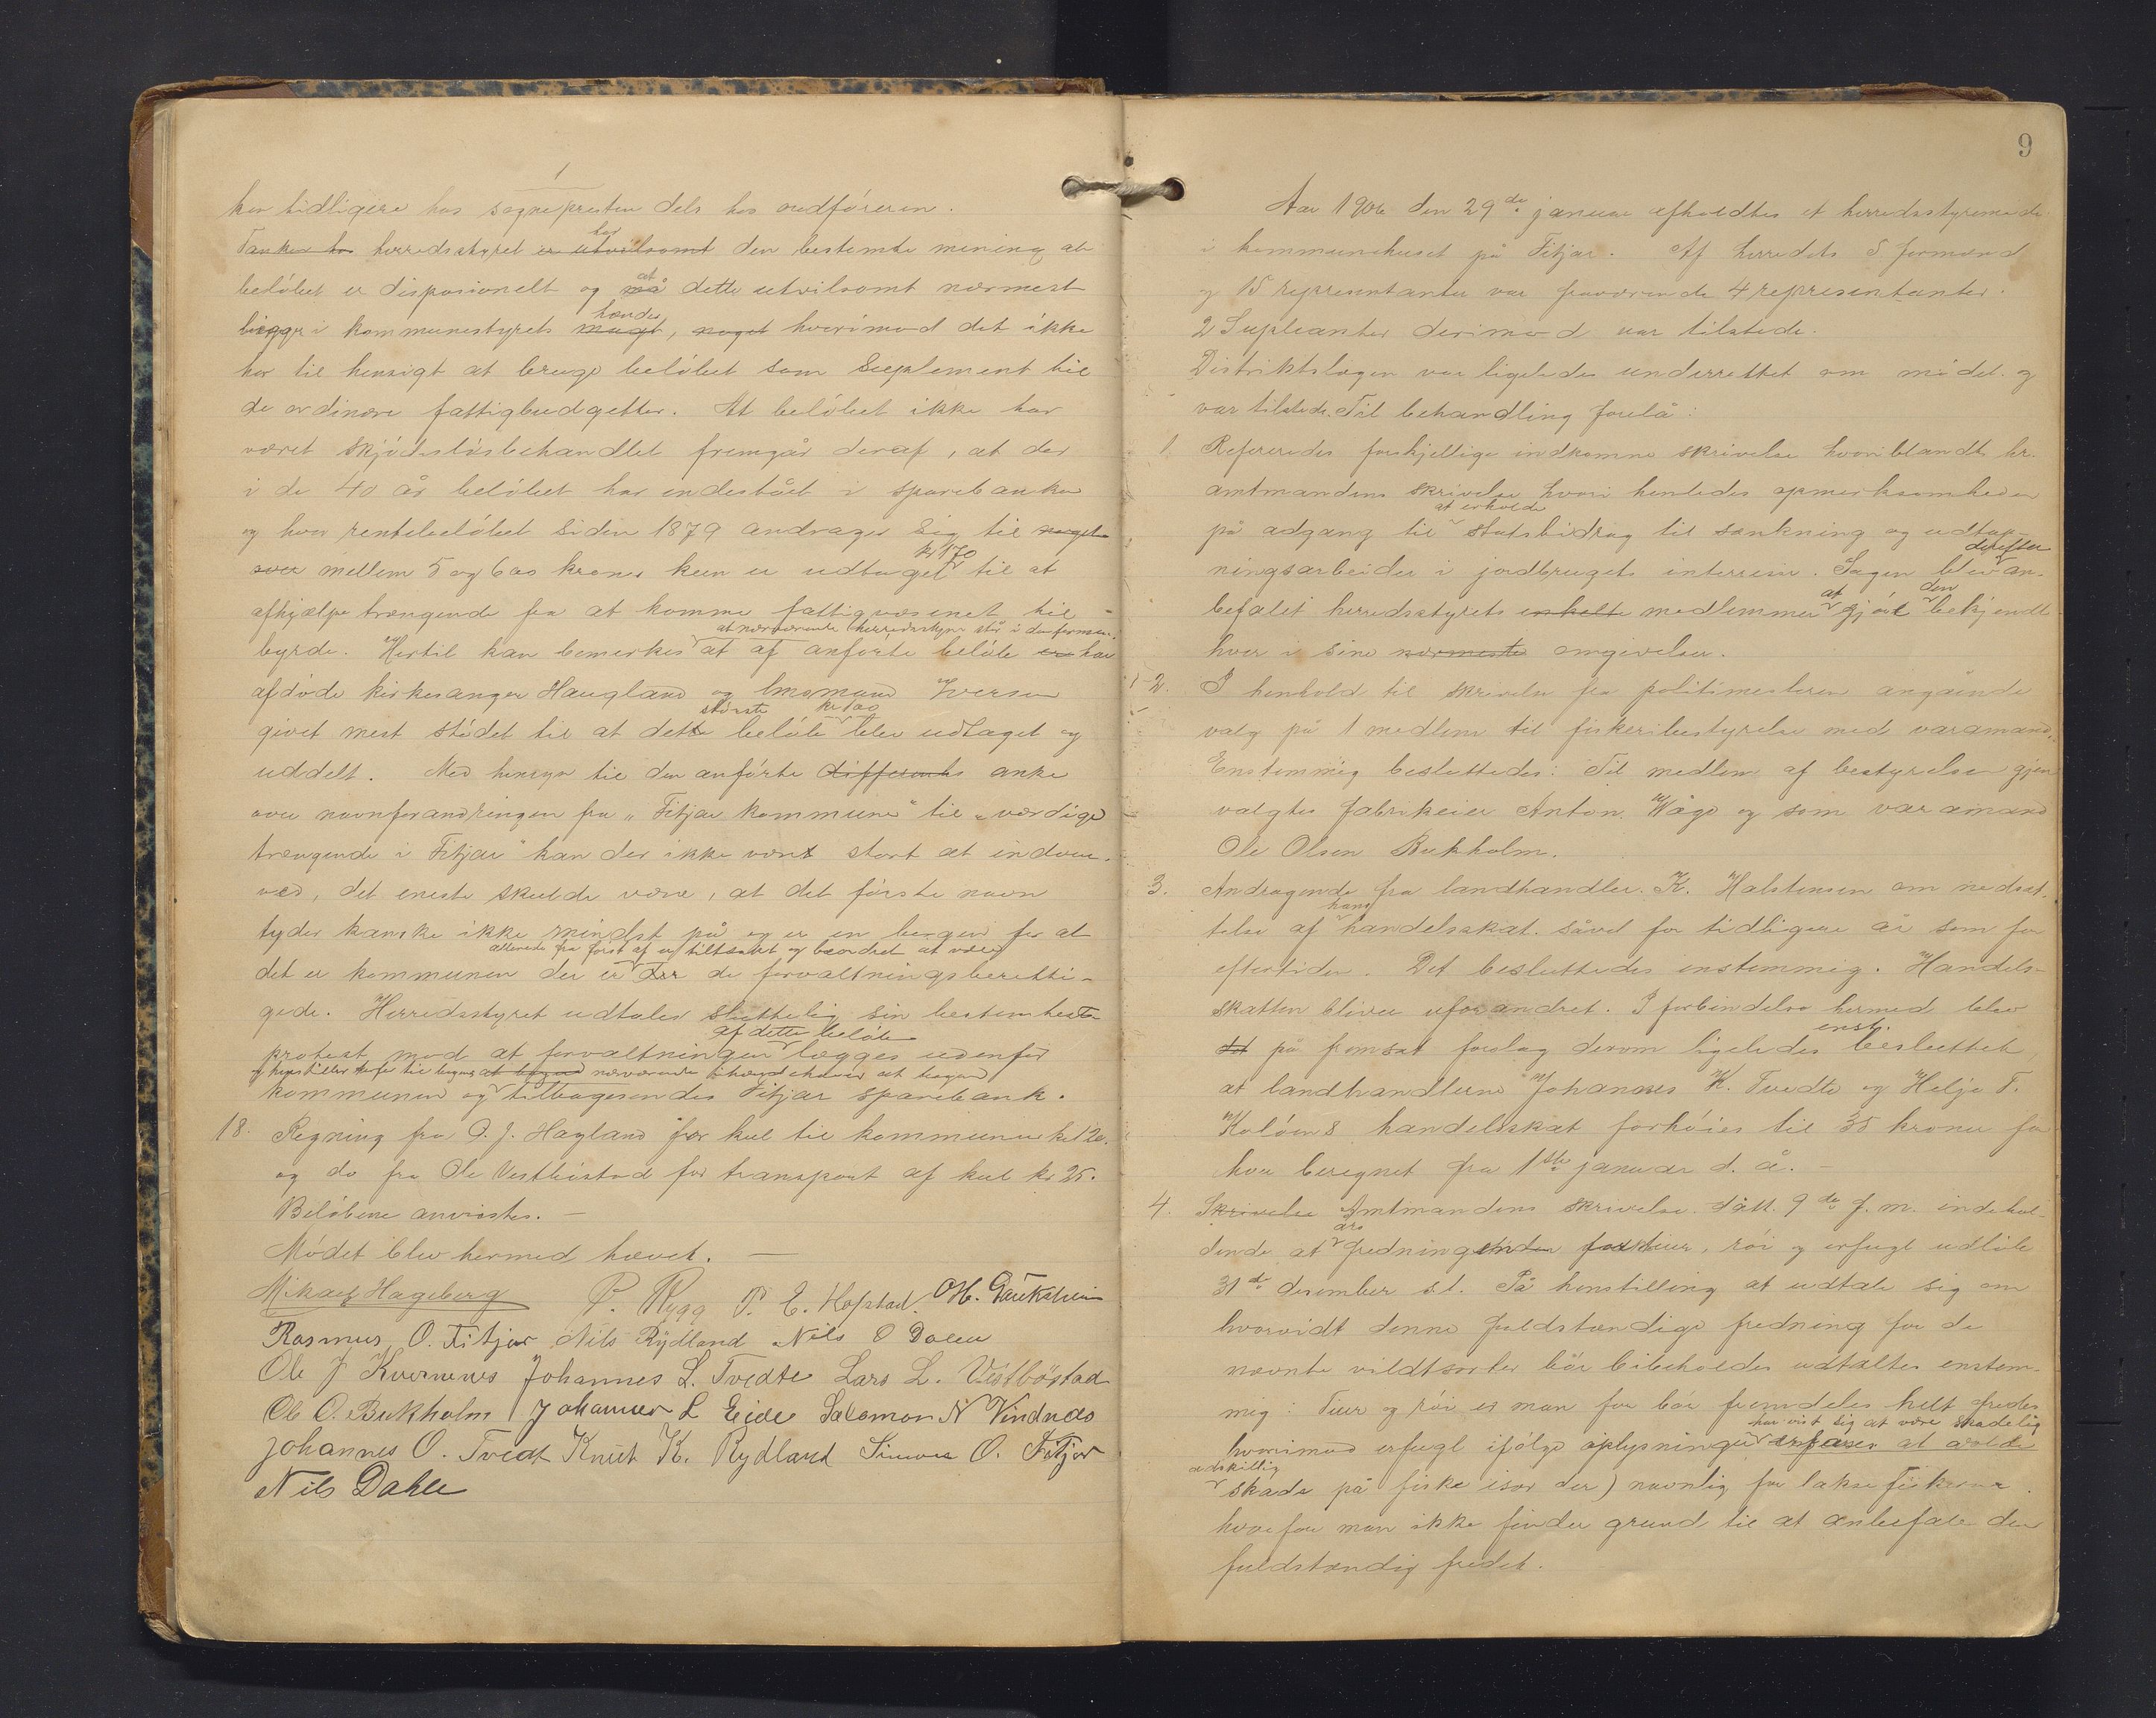 1
har tidligere hos sognepresten dels hos ordføreren.
har
herredsstyret er utvilsomt den bestemte mening at
at
beløbet er disposionelt og må dette utvilsomt nærmest
hænder
ligger i kommunestyrets magt, noget hvorimod det ikke
har til hensigt at bruge beløbet som Suplement til
de ordinære fattigbudgetter. At beløbet ikke har
været skjødesløsbehandlet fremgår deraf, at der
i de 40 år beløbet har indestået i sparebanken
og hvor rentebeløbet siden 1879 andrager sig til noget
kr 170
over mellem 5 og 600 kroner kun er udtaget til at
afhjælpe trængende fra at komme fattigvæsenet til
at nærværende herredsstyre står i den formen.
byrde. Hertil kan bemerkes at af anførte beløb er har
afdøde kirkesanger Haugland og Iversen
største kr 100
givet mest stødet til at dette beløb blev udtaget og
uddelt. Med hensyn til den anførte anke
over navnforandringen fra "Fitjar kommune" til "værdige
trængende i Fitjar" kan der ikke være stort at indven-
ved, det eneste skulde være, at det første navn
tyder kanske ikke mindst på og er en borgen for at
allerede fra først af er tiltænkt og beordret at være
det er kommunen der er der de forvaltningsberetti-
gede. Herredsstyret udtaler sluttelig sin bestemteste
af dette beløb
protest mod at forvaltningen lægges udenfor
kommunen og tilbagesendes Fitjar sparebank.
18. Regning fra O. J. Hagland for kul til kommunen kr 120.
og do fra Ole Vestbøstad for transport af kul kr 25.
Beløbene anvistes. —
Mødet blev hermed hævet. —
Mikael Hageberg P. Rygg P. E. Hofstad. O. H. Gaukstein
Rasmus O. Fitjar Nils Rydland Nils O Dalen
Ole J Kvernenes Johannes L. Tvedte Lars L. Vestbøstad
Ole O. Bukholm Johannes L Eide Salomon N Vindnæs
Johannes O. Tvedt Knut K. Rydland Simon O. Fitjar
Nils Dahle
9
Aar 1906 den 29de januar afholdtes et herredsstyremøde
i kommunehuset på Fitjar. Af herredets 5 formænd
og 15 representanter var fraværende 4 representanter.
2 Supleanter derimod var tilstede.
Distriktslægen var ligeledes underrettet om mødet og
var tilstede. Til behandling forelå:
1. Refereredes forskjellige indkomne skrivelse hvoriblandt hr.
amtmandens skrivelse hvori henledes opmerksomheden
at erholde
på adgang til statsbidrag til sænkning og udtap-
derefter
ningsarbeider i jordbrugets interesse. Sagen blev an-
at den
befalet herredsstyrets enkelte medlemmer gjøre bekjendt
hver i sine nærmeste omgivelser.
2. I henhold til skrivelse fra politimesteren angående
valg på 1 medlem til fiskeribestyrelse med varamand.
Enstemmig besluttedes: Til medlem af bestyrelsen gjen
valgtes fabrikeier Anton Våge og som varamand
Ole Olsen Bukholm.
3. Andragende fra landhandler K. Halstensen om nedsæt-
hans
telse af handelsskat såvel for tidligere år som for
eftertiden. Det besluttedes enstemmig. Handels-
skatten bliver uforandret. I forbindelse hermed blev
enst.
det på fremsat forslag derom ligeledes besluttet,
at landhandlerne Johannes K. Tvedte og Helje T.
Koløens handelsskat forhøies til 35 kroner for
hver beregnet fra 1ste januar d. å. —
4. Skrivelse Amtmandens skrivelse datt. 9de f. m. indehol-
års
dende at fredning for tiur, røi og erfugl udløb
31de desember s.l. På henstilling at udtale sig om
hvorvidt denne fuldstændige fredning for de
nævnte vildtsorter bør bibeholdes udtaltes enstem-
mig: Tiur og røi er man for bør fremdeles helt fredes
har vist sig at være skadelig
hvorimod erfugl ifølge oplysninger at volde
adskillig
skade på fiske især der) navnlig for laksefiskerne
hvorfor man ikke finder grund til at anbefale den
fuldstændig fredet.